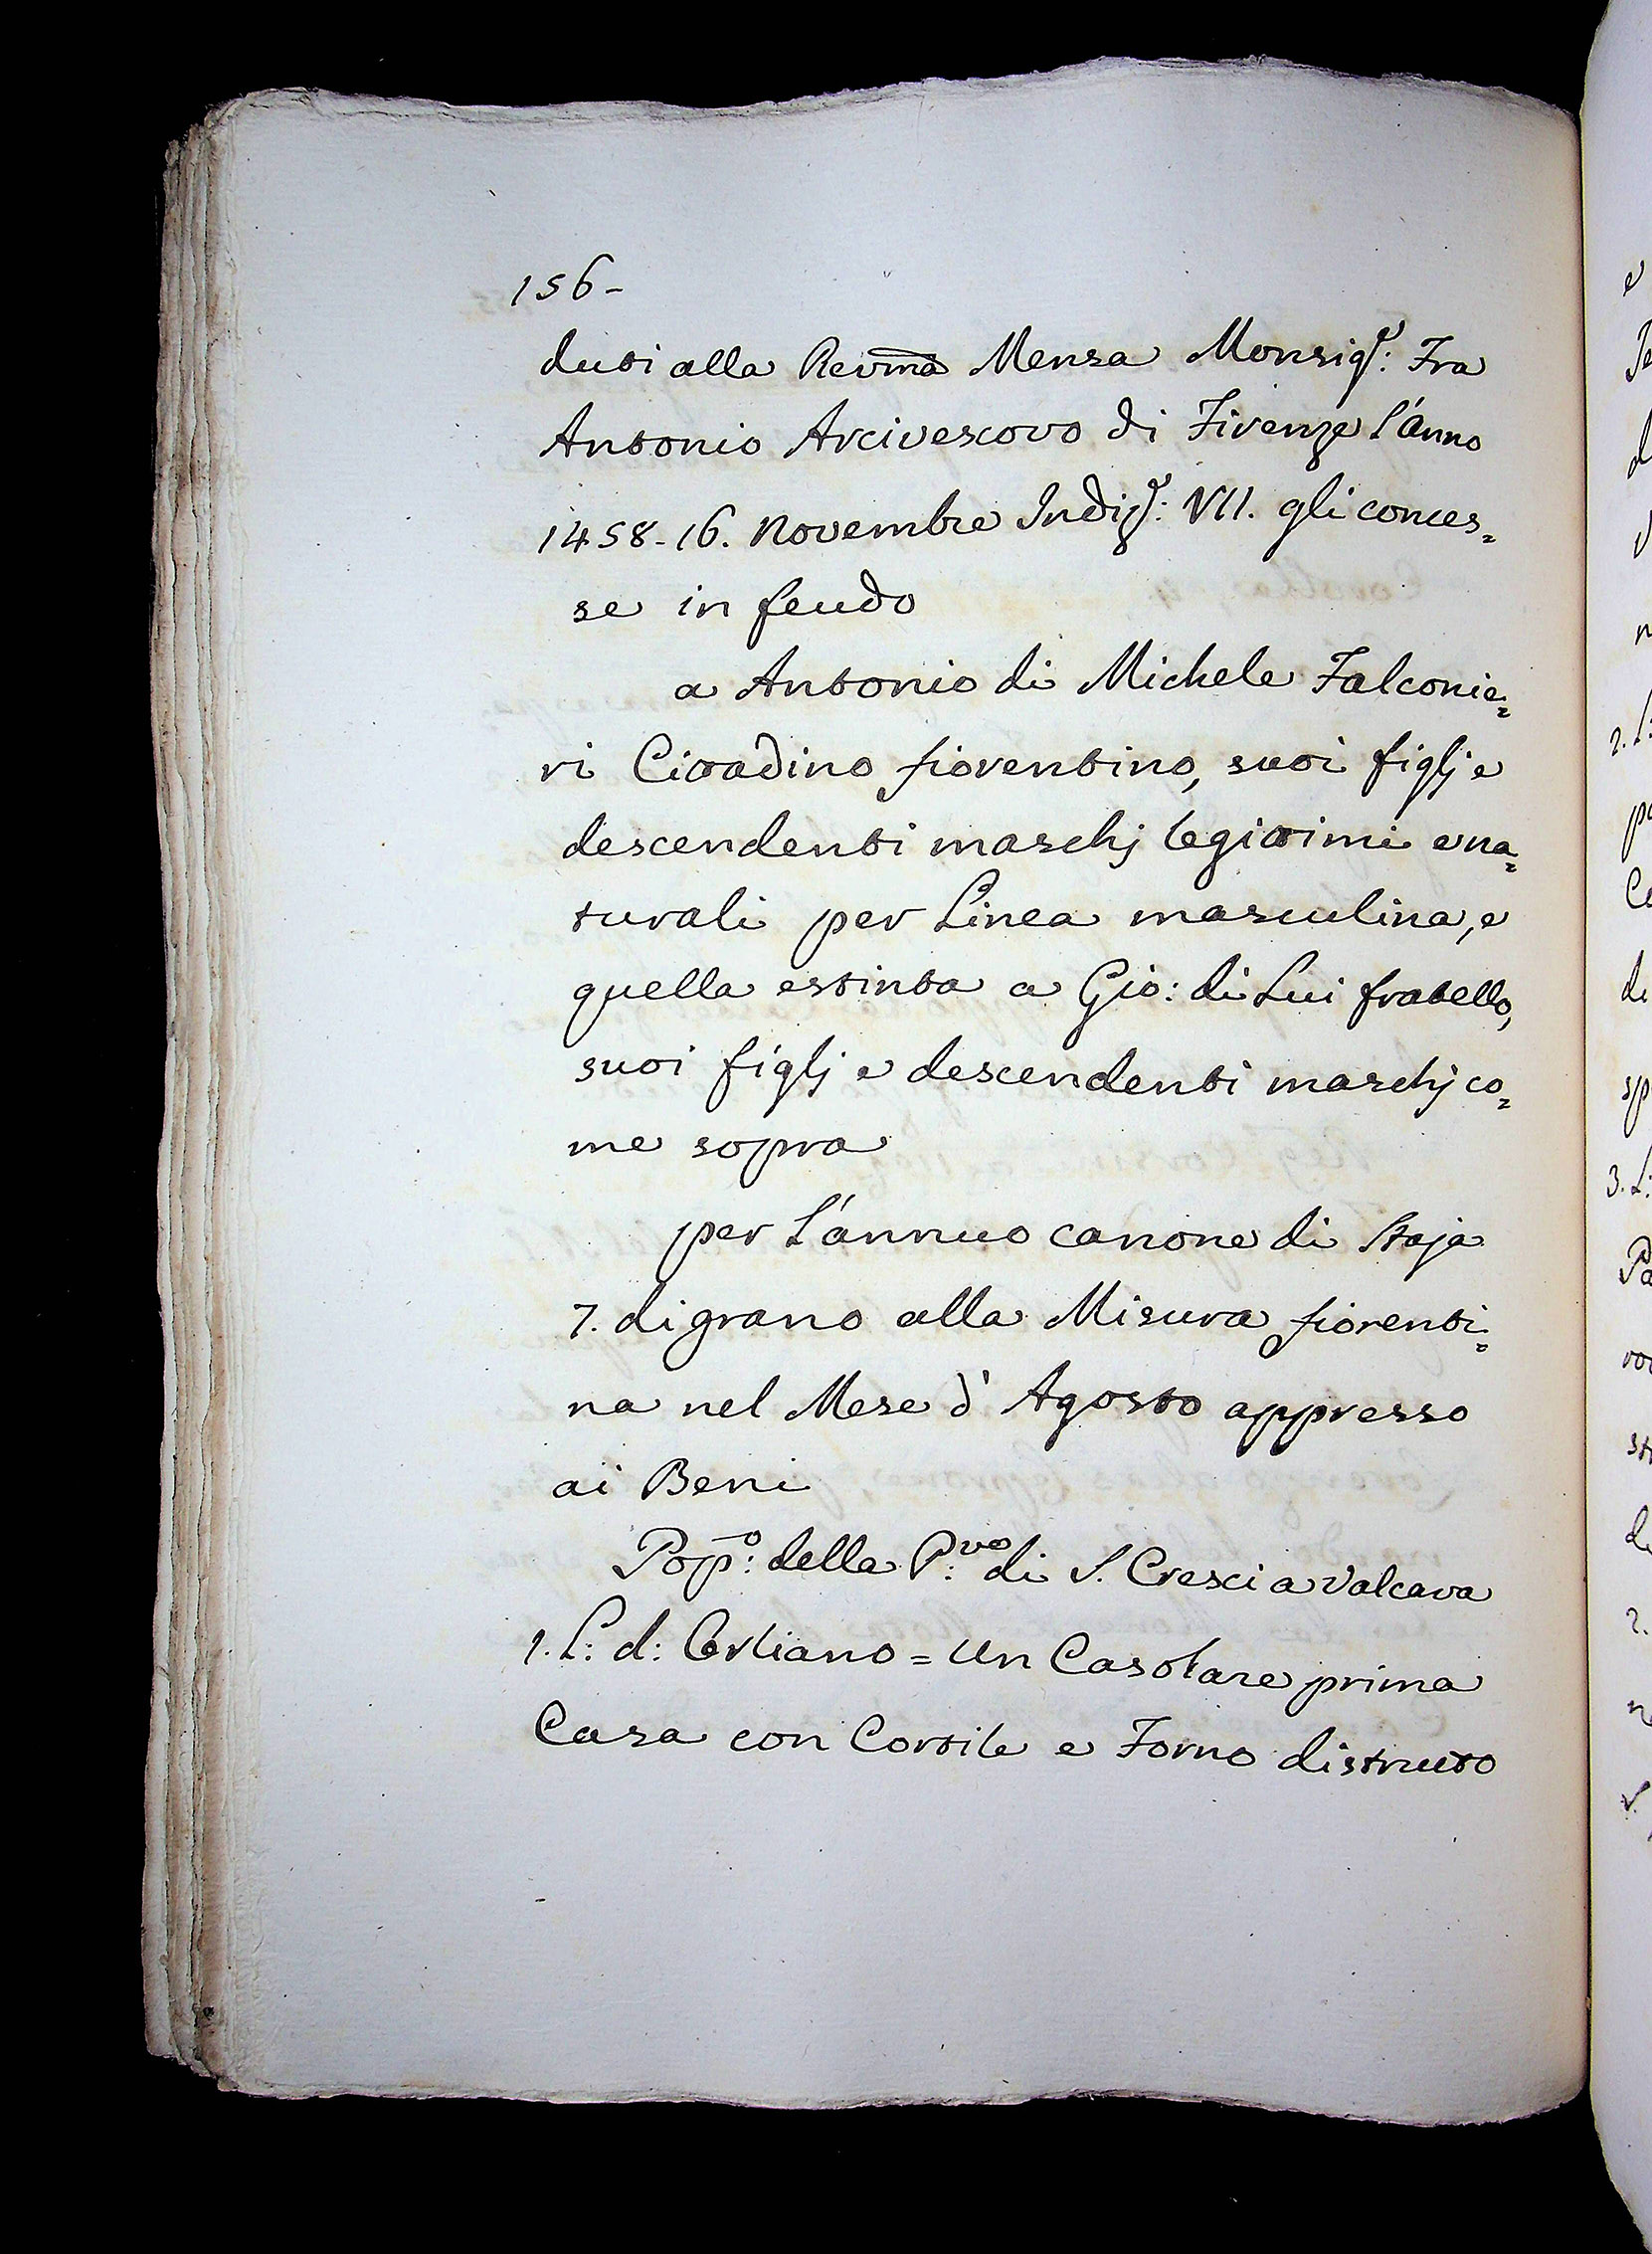 156-
duti alla Revma Mensa Monsig.: Fra
Antonio Arcivescovo di Firenze l'Anno
1458-16. Novembre Indiz.: VII. gli conces=
se in feudo
a Antonio di Michele Falconie=
ri Cittadino fiorentino, suoi figlj e
descendenti maschj legittimi e na=
turali per Linea masculina, e
quella estinta a Gio: di Lui fratello,
suoi figlj e descendenti maschj co=
me sopra
per l'annuo canone di Staja
7. di grano alla Misura fiorenti=
na nel Mese d'Agosto appresso
ai Beni
Pop.o: della P.ve di S. Cresci a Valcava
1. L: d: Cerliano = Un Casolare prima
Casa con Cortile e Forno distrutto